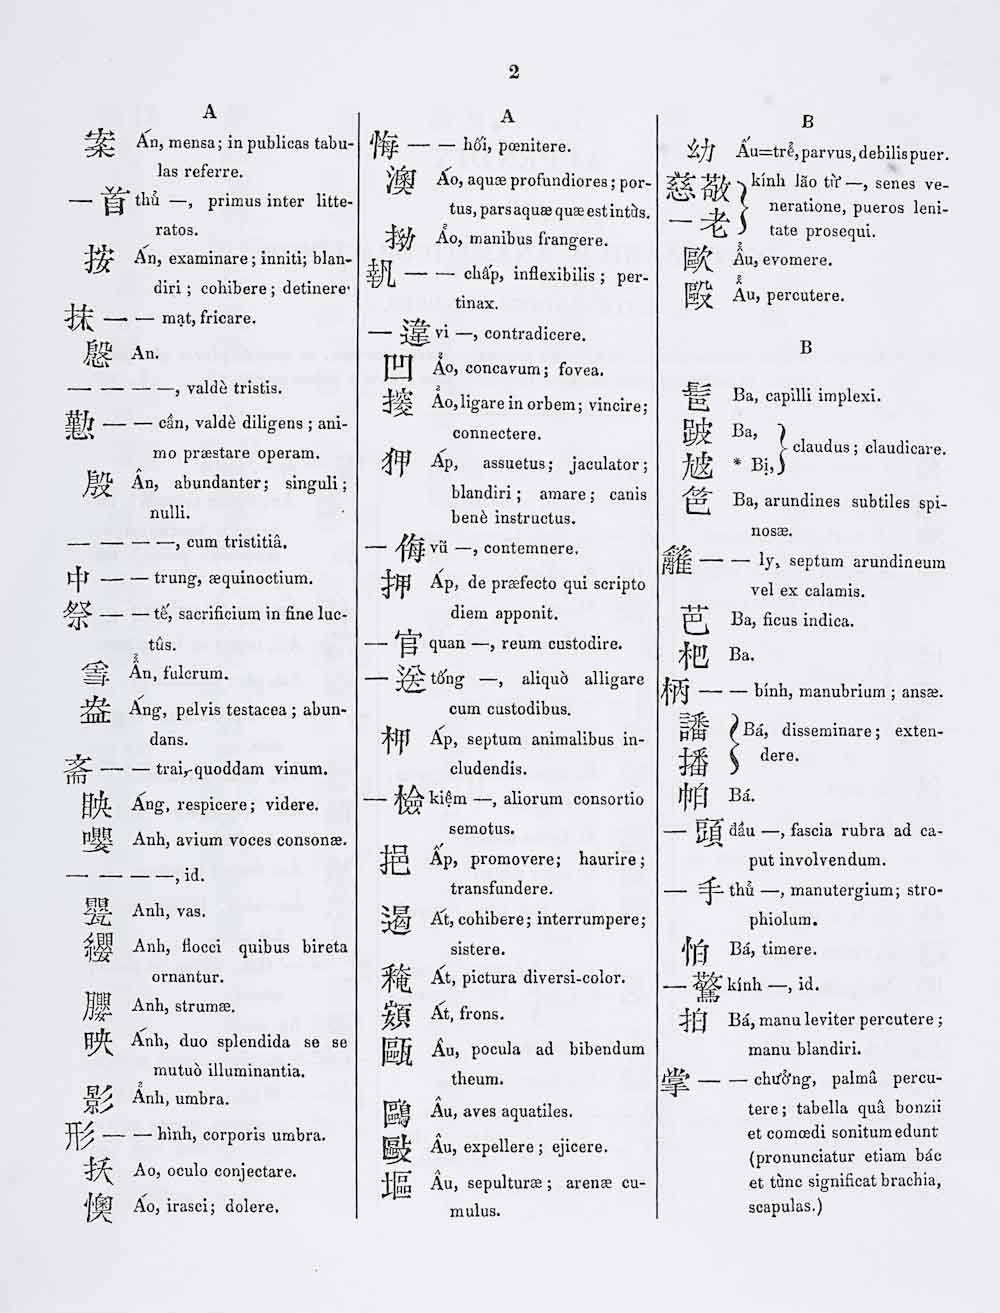 2
A
案 Án, mensa; in publicas tabu-
las referre.
— 首 thủ —, primus inter litte-
ratos.
按 Án, examinare; inniti; blan-
diri; cohibere; detinere·
抹 — — mạt, fricare.
慇 An.
— — — —, valdè tristis.
懃 — — cần, valdè diligens; ani-
mo præstare operam.
殷 Ân, abundanter; singuli;
nulli.
— — — —, cum tristitiâ.
中 — — trung, æquinoctium.
祭 — — tế, sacrificium in fine luc-
tûs.
Ẩn, fulcrum.
盎 Áng, pelvis testacea; abun-
dans.
斋 — — trai, quoddam vinum.
眏 Áng, respicere; videre.
嚶 Anh, avium voces consonæ.
— — — —, id.
甖 Anh, vas.
纓 Anh, flocci quibus bireta
ornantur.
Anh, strumæ.
映 Ánh, duo splendida se se
mutuò illuminantia.
影 Ảnh, umbra.
形 — — hình, corporis umbra.
抚 Ao, oculo conjectare.
懊 Áo, irasci; dolere.
A
悔 — — hối, pœnitere.
澳 Áo, aquæ profundiores; por-
tus, pars aquæ quæ est intùs.
拗 Ảo, manibus frangere.
執 — — chấp, inflexibilis; per-
tinax.
— 違 vi —, contradicere.
凹 Ảo, concavum; fovea.
Ảo, ligare in orbem; vincire;
connectere.
狎 Áp, assuetus; jaculator;
blandiri; amare; canis
benè instructus.
— 侮 vũ —, contemnere.
押 Áp, de præfecto qui scripto
diem apponit.
— 官 quan —, reum custodire.
— 送 tống —, aliquò alligare
cum custodibus.
柙 Áp, septum animalibus in-
cludendis.
— 檢 kiệm —, aliorum consortio
semotus.
挹 Ấp, promovere; haurire;
transfundere.
遏 Át, cohibere; interrumpere;
sistere.
Át, pictura diversi-color.
頞 Át, frons.
甌 Âu, pocula ad bibendum
theum.
鷗 Âu, aves aquatiles.
毆 Âu, expellere; ejicere.
塸 Âu, sepulturæ; arenæ cu-
mulus.
B
幼 Ấu=trẻ, parvus, debilis puer.
慈敬 kính lão từ —, senes ve-
— 老 neratione, pueros leni-
tate prosequi.
歐 Ẩu, evomere.
毆 Ẩu, percutere.
B
Ba, capilli implexi.
跛 Ba,
尳 * Bị, claudus; claudicare.
笆 Ba, arundines subtiles spi-
nosæ.
籬 — — ly, septum arundineum
vel ex calamis.
芭 Ba, ficus indica.
杷 Ba.
柄 — — bính, manubrium; ansæ.
譒 Bá, disseminare; exten-
播 dere.
帕 Bá.
— 頭 đầu —, fascia rubra ad ca-
put involvendum.
— 手 thủ —, manutergium; stro-
phiolum.
怕 Bá, timere.
— 驚 kính —, id.
拍 Bá, manu leviter percutere;
manu blandiri.
掌 — — chưởng, palmâ percu-
tere; tabella quâ bonzii
et comœdi sonitum edunt
(pronunciatur etiam bác
et tùnc significat brachia,
scapulas.)